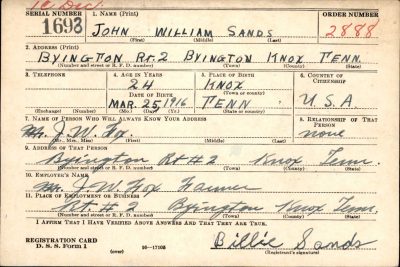 10 Dec
SERIAL NUMBER 1. NAME (Print) ORDER NUMBER
1693 JOHN WILLIAM SANDS 2888
(First) (Middle) (Last)
2. ADDRESS (Print)
BYINGTON Rt. 2 BYINGTON KNOX TENN.
(Number and street or R. F. D. number) (Town) (County) (State)
3. TELEPHONE 4. AGE IN YEARS 5. PLACE OF BIRTH 6. COUNTRY OF CITIZENSHIP
24 KNOX
(Town) (County)
DATE OF BIRTH
MAR. 25 1916 TENN U.S.A
(Exchange) (No.) (Mo.) (Day) (Yr.) (State or country)
7. NAME OF PERSON WHO WILL ALWAYS KNOW YOUR ADDRESS 8. RELATIONSHIP OF THAT PERSON
Mr. J. W. Fox none
(Mr., Mrs., Miss) (First) (Middle) (Last)
9. ADDRESS OF THAT PERSON
Byington Rt #2 Knox Tenn.
(Number and street or R. F. D. number) (Town) (County) (State)
10. EMPLOYER'S NAME
Mr. J. W. Fox Farmer
11. PLACE OF EMPLOYMENT OR BUSINESS
Rt. #2 Byington Knox Tenn.
(Number and street or R. F. D. number) (Town) (County) (State)
I AFFIRM THAT I HAVE VERIFIED ABOVE ANSWERS AND THAT THEY ARE TRUE.
Billie Sands
REGISTRATION CARD
D. S. S. Form 1 (over) 16—17105 (Registrant's signature)